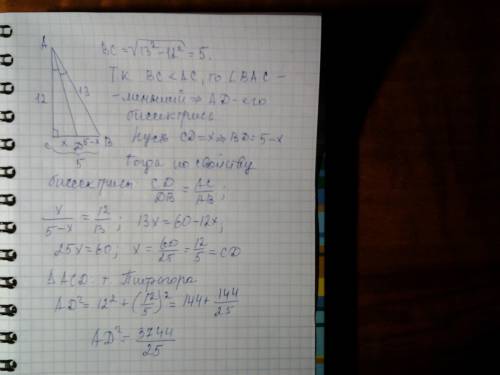 A
12
13
x
5-x
C
D
B
5
BC=√(13²-12²)=5.
Т.к BC<AC, то ∠BAC -
- меньший ⇒ AD - его
биссектриса
Пусть CD=x ⇒ BD=5-x
Тогда по свойству
биссектрисы CD/DB = AC/AB ;
x/(5-x) = 12/13 ; 13x=60-12x;
25x=60; x = 60/25 = 12/5 = CD
ΔACD: т. Пифагора
AD²= 12² + (12/5)² = 144 + 144/25
AD² = 3744/25